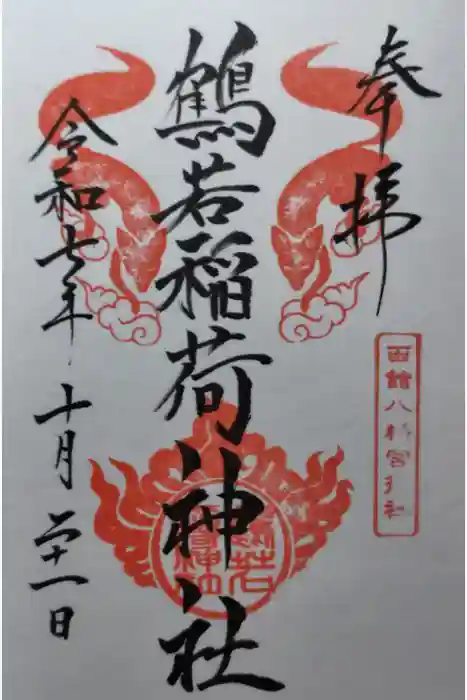 奉拝
函館八幡宮末社
鶴若稲荷神社
鶴若稲荷神社
令和七年十月二十一日